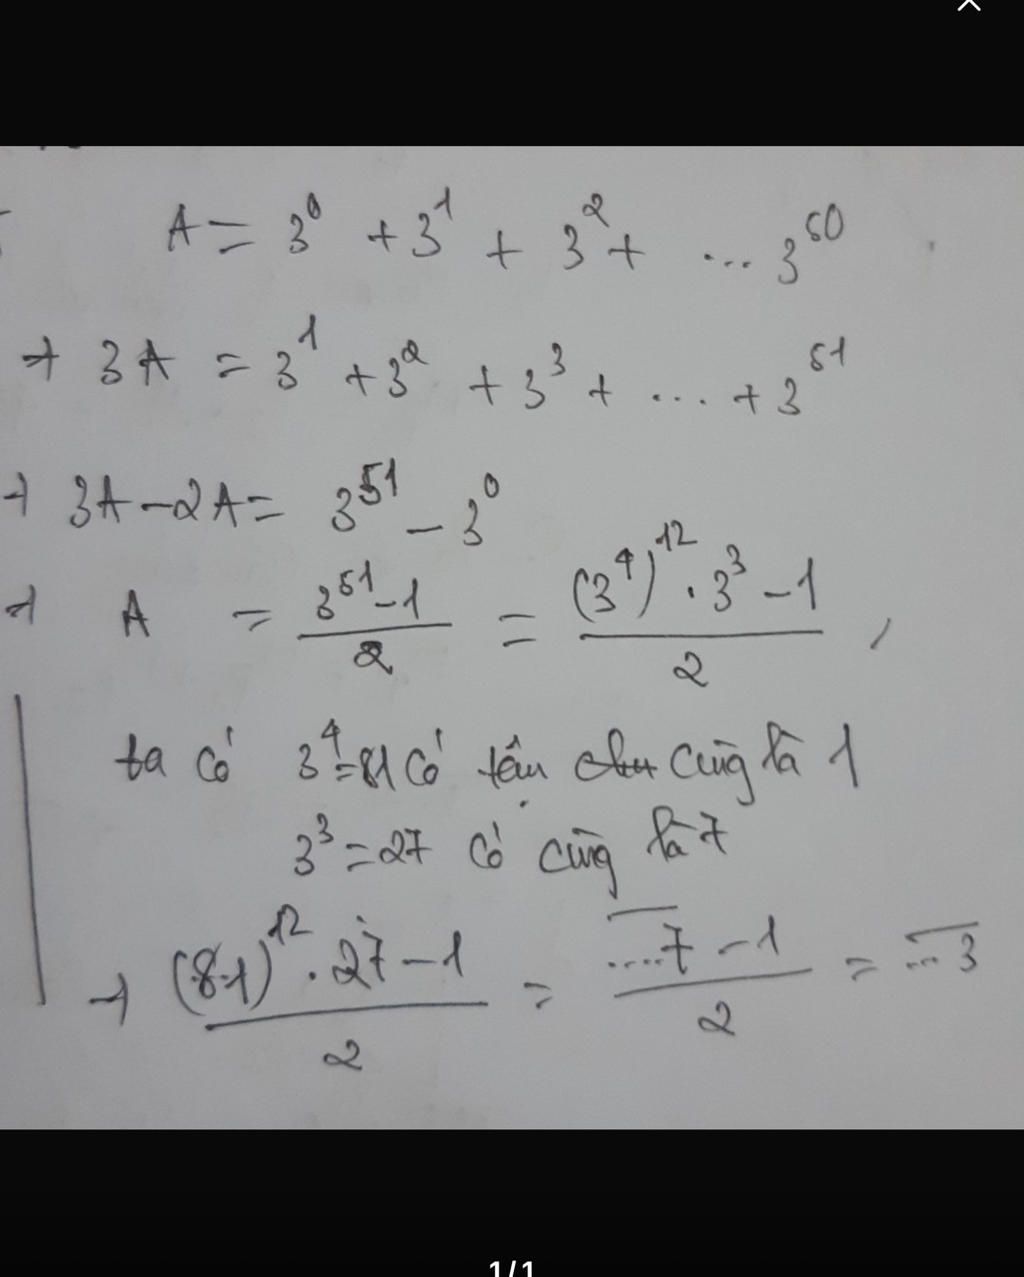 A = 3⁰ + 3¹ + 3² + ... 3⁵⁰
→ 3A = 3¹ + 3² + 3³ + ... + 3⁵¹
→ 3A - 2A = 3⁵¹ - 3⁰
→ A = (3⁵¹ - 1)/2 = ((3⁴)¹² . 3³ - 1)/2 ,
ta có 3⁴ = 81 có cùng là 1
3³ = 27 có cùng là 7
→ ((81)¹² . 27 - 1)/2 = (....7 - 1)/2 = ...3
1/1